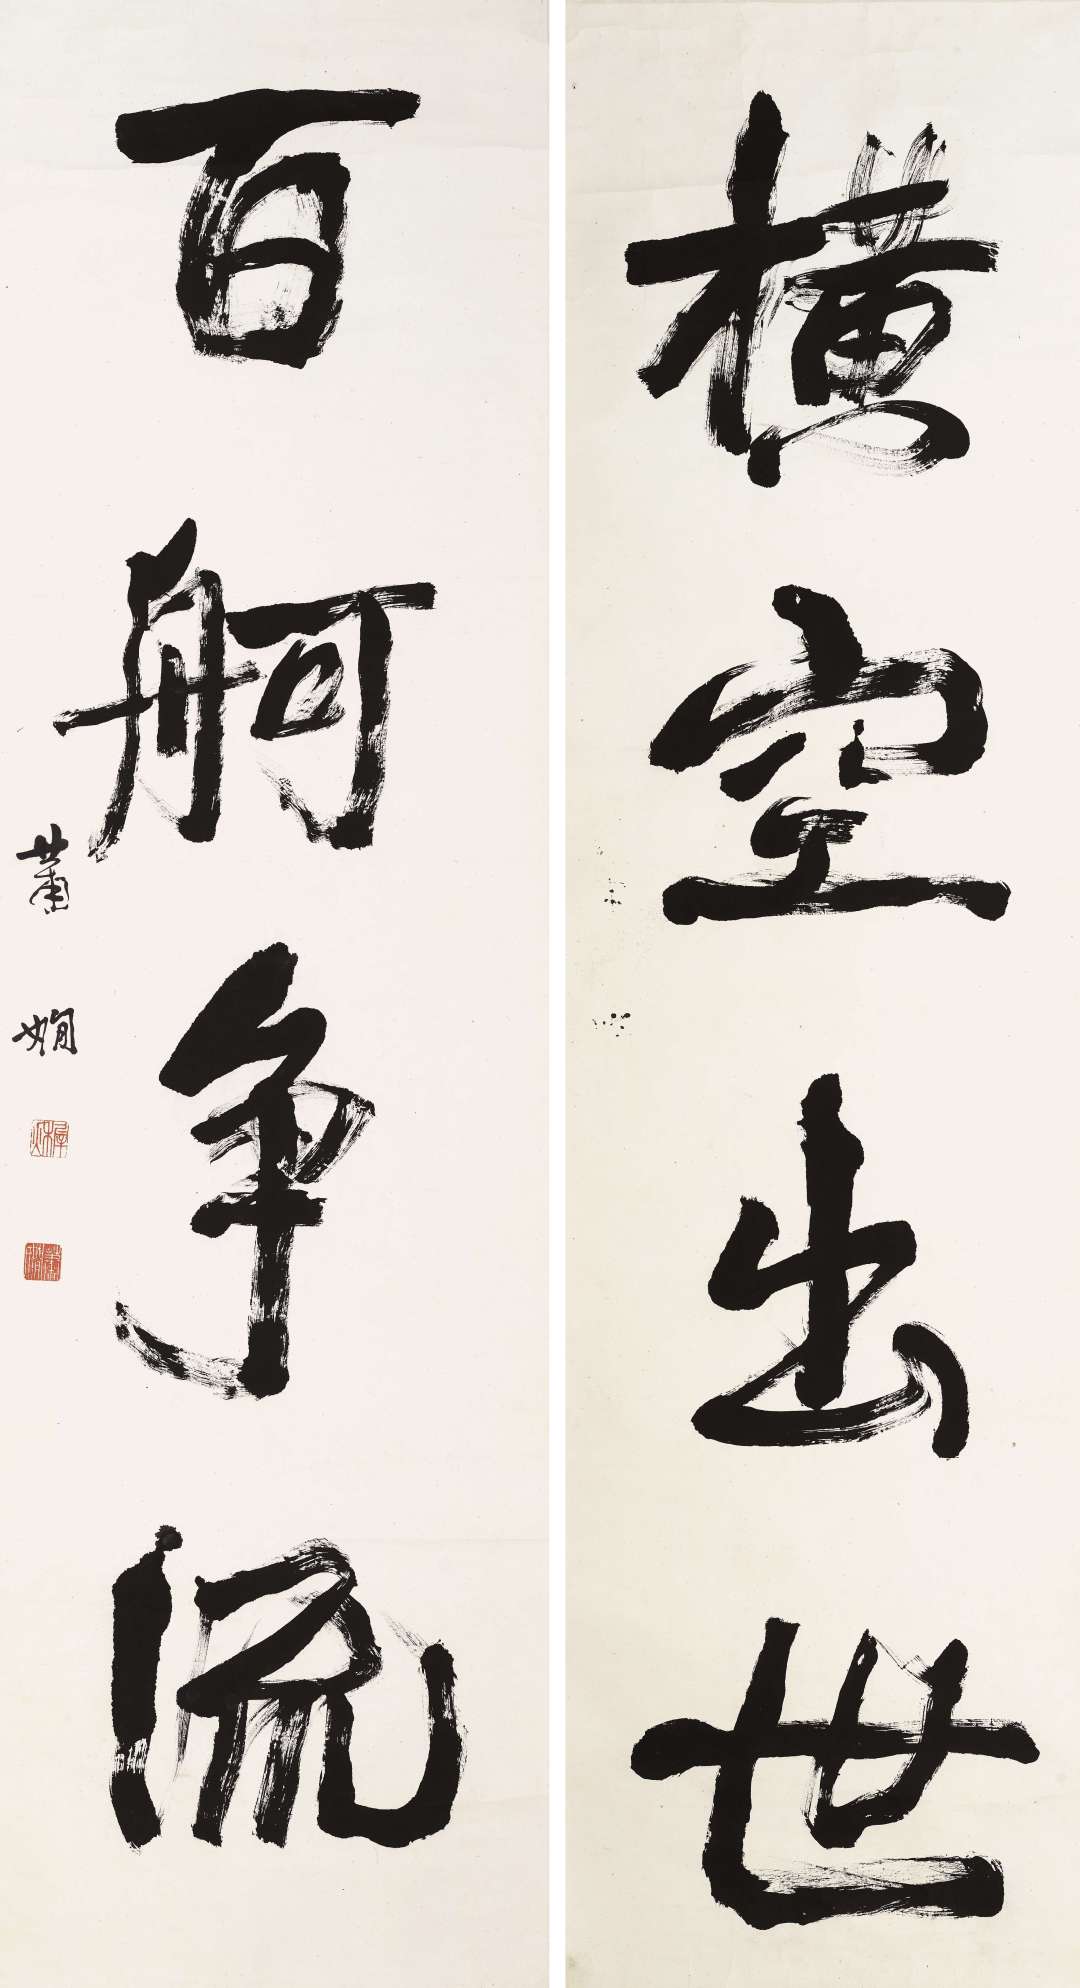 横空出世
百舸争流
萧娴